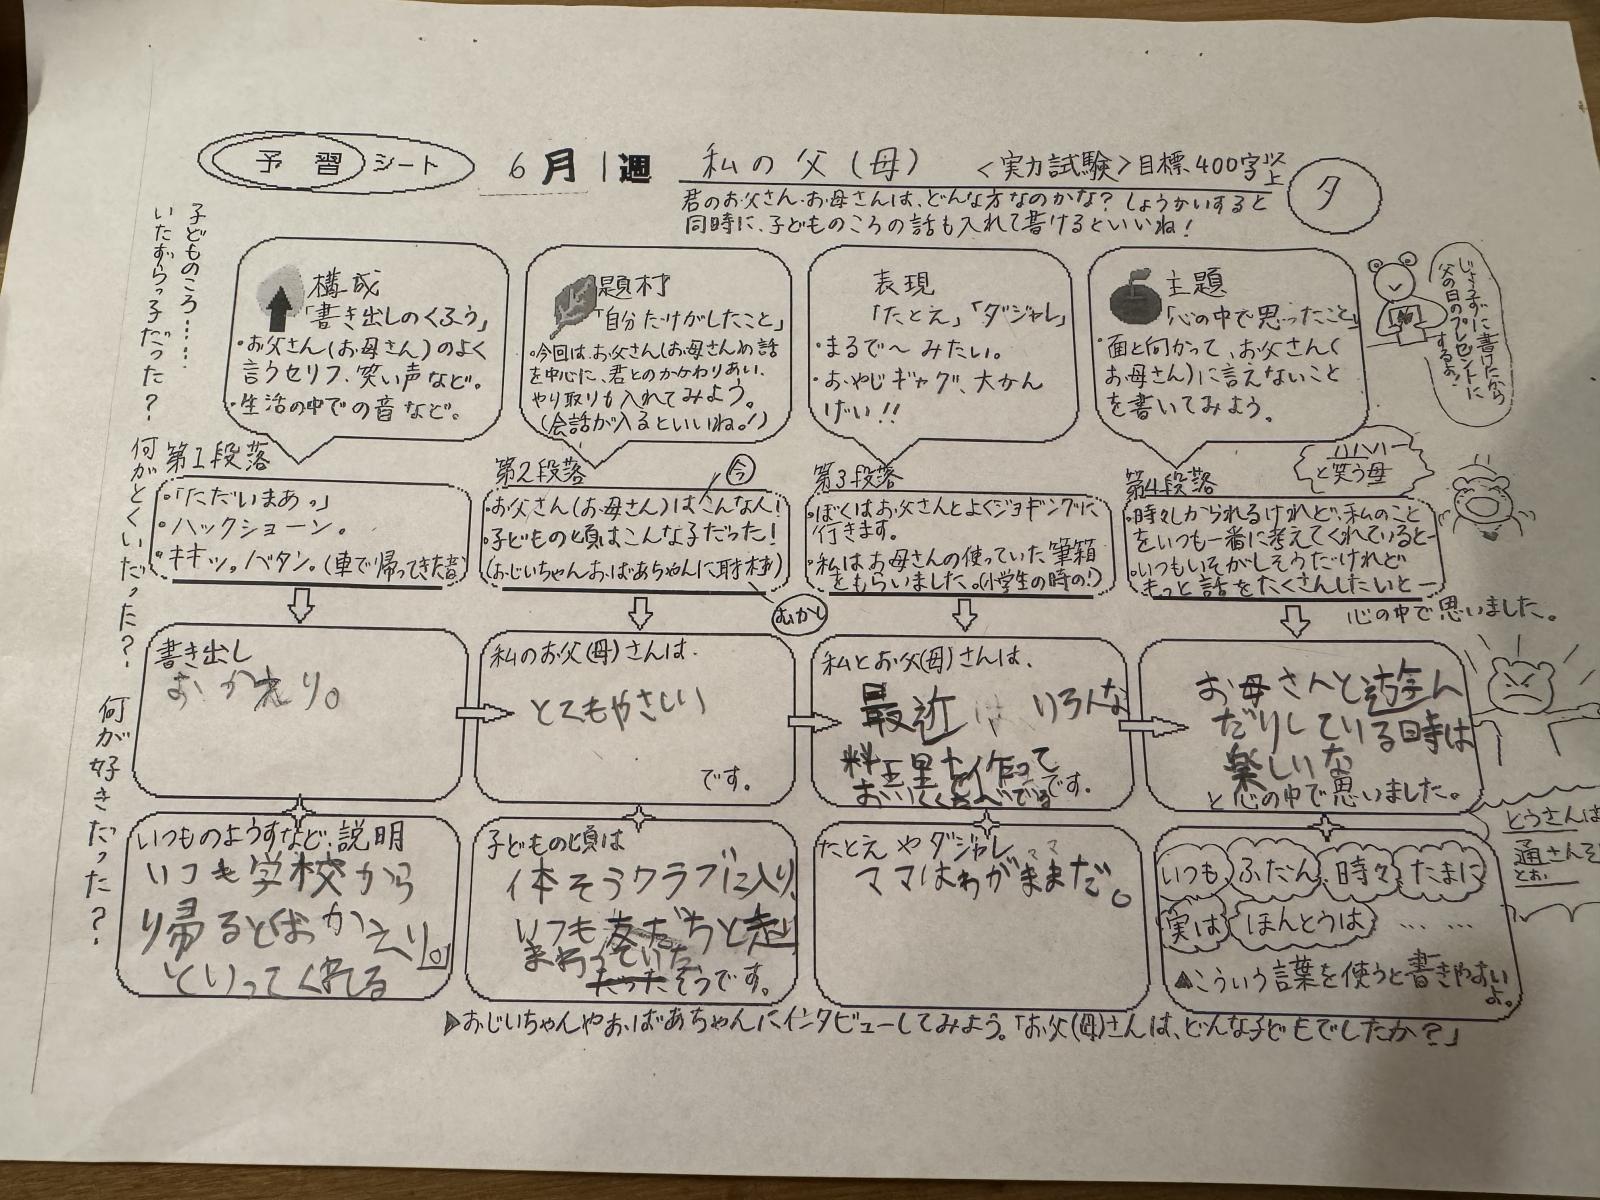 予習シート 6月1週 私の父(母) <実力試験>目標400字以上 夕
君のお父さん、お母さんは、どんな方なのかな？しょうかいすると
同時に、子どものころの話も入れて書けるといいね！
子どものころ……
いたずらっ子だった？
何がとくいだった？
何が好きだった？
構成
「書き出しのくふう」
・お父さん(お母さん)のよく
言うセリフ、笑い声など。
・生活の中での音など。
題材
「自分だけがしたこと」
・今回は、お父さん(お母さん)の話
を中心に、君とのかかわりあい、
やり取りも入れてみよう。
(会話が入るといいね。！)
表現
「たとえ」「ダジャレ」
・まるで〜みたい。
・おやじギャグ、大かん
げい!!
主題
「心の中で思ったこと」
・面と向かって、お父さん(
お母さん)に言えないこと
を書いてみよう。
じょうずに書けたから
父の日のプレゼントに
するよ！
第1段落
・「ただいまあっ」
・ハックショーン。
・キキッ。バタン。(車で帰ってきた音)
第2段落
今
・お父さん(お母さん)はこんな人！
・子どもの頃はこんな子だった！
(おじいちゃんおばあちゃんに取材)
むかし
第3段落
・ぼくはお父さんとよくジョギングに
行きます。
・私はお母さんの使っていた筆箱
をもらいました。(小学生の時の!)
第4段落
ハハハー
と笑う母
・時々しかられるけれど、私のこと
をいつも一番に考えてくれていると―
・いつもいそがしそうだけれど
もっと話をたくさんしたいと―
心の中で思いました。
書き出し
おかえり。
私のお父(母)さんは、
とてもやさしい
です。
私とお父(母)さんは、
最近は いろんな
料理を作って
です。
お母さんと遊んだ
だりしている時は
楽しいな
と心の中で思いました。
いつものようすなど、説明
いつも学校から
り帰るとおかえり。
といってくれる
子どもの頃は
体そうクラブに入り、
いつも友だちと走り
まわっていた
だった そうです。
たとえやダジャレ
ママ
ママはわがままだ。
いつも ふだん 時々 たまに
実は ほんとうは …… ……
▲こういう言葉を使うと書きやすい
よ。
とうさんは
通さんぞ
とお
▶おじいちゃんやおばあちゃんにインタビューしてみよう。「お父(母)さんは、どんな子どもでしたか？」